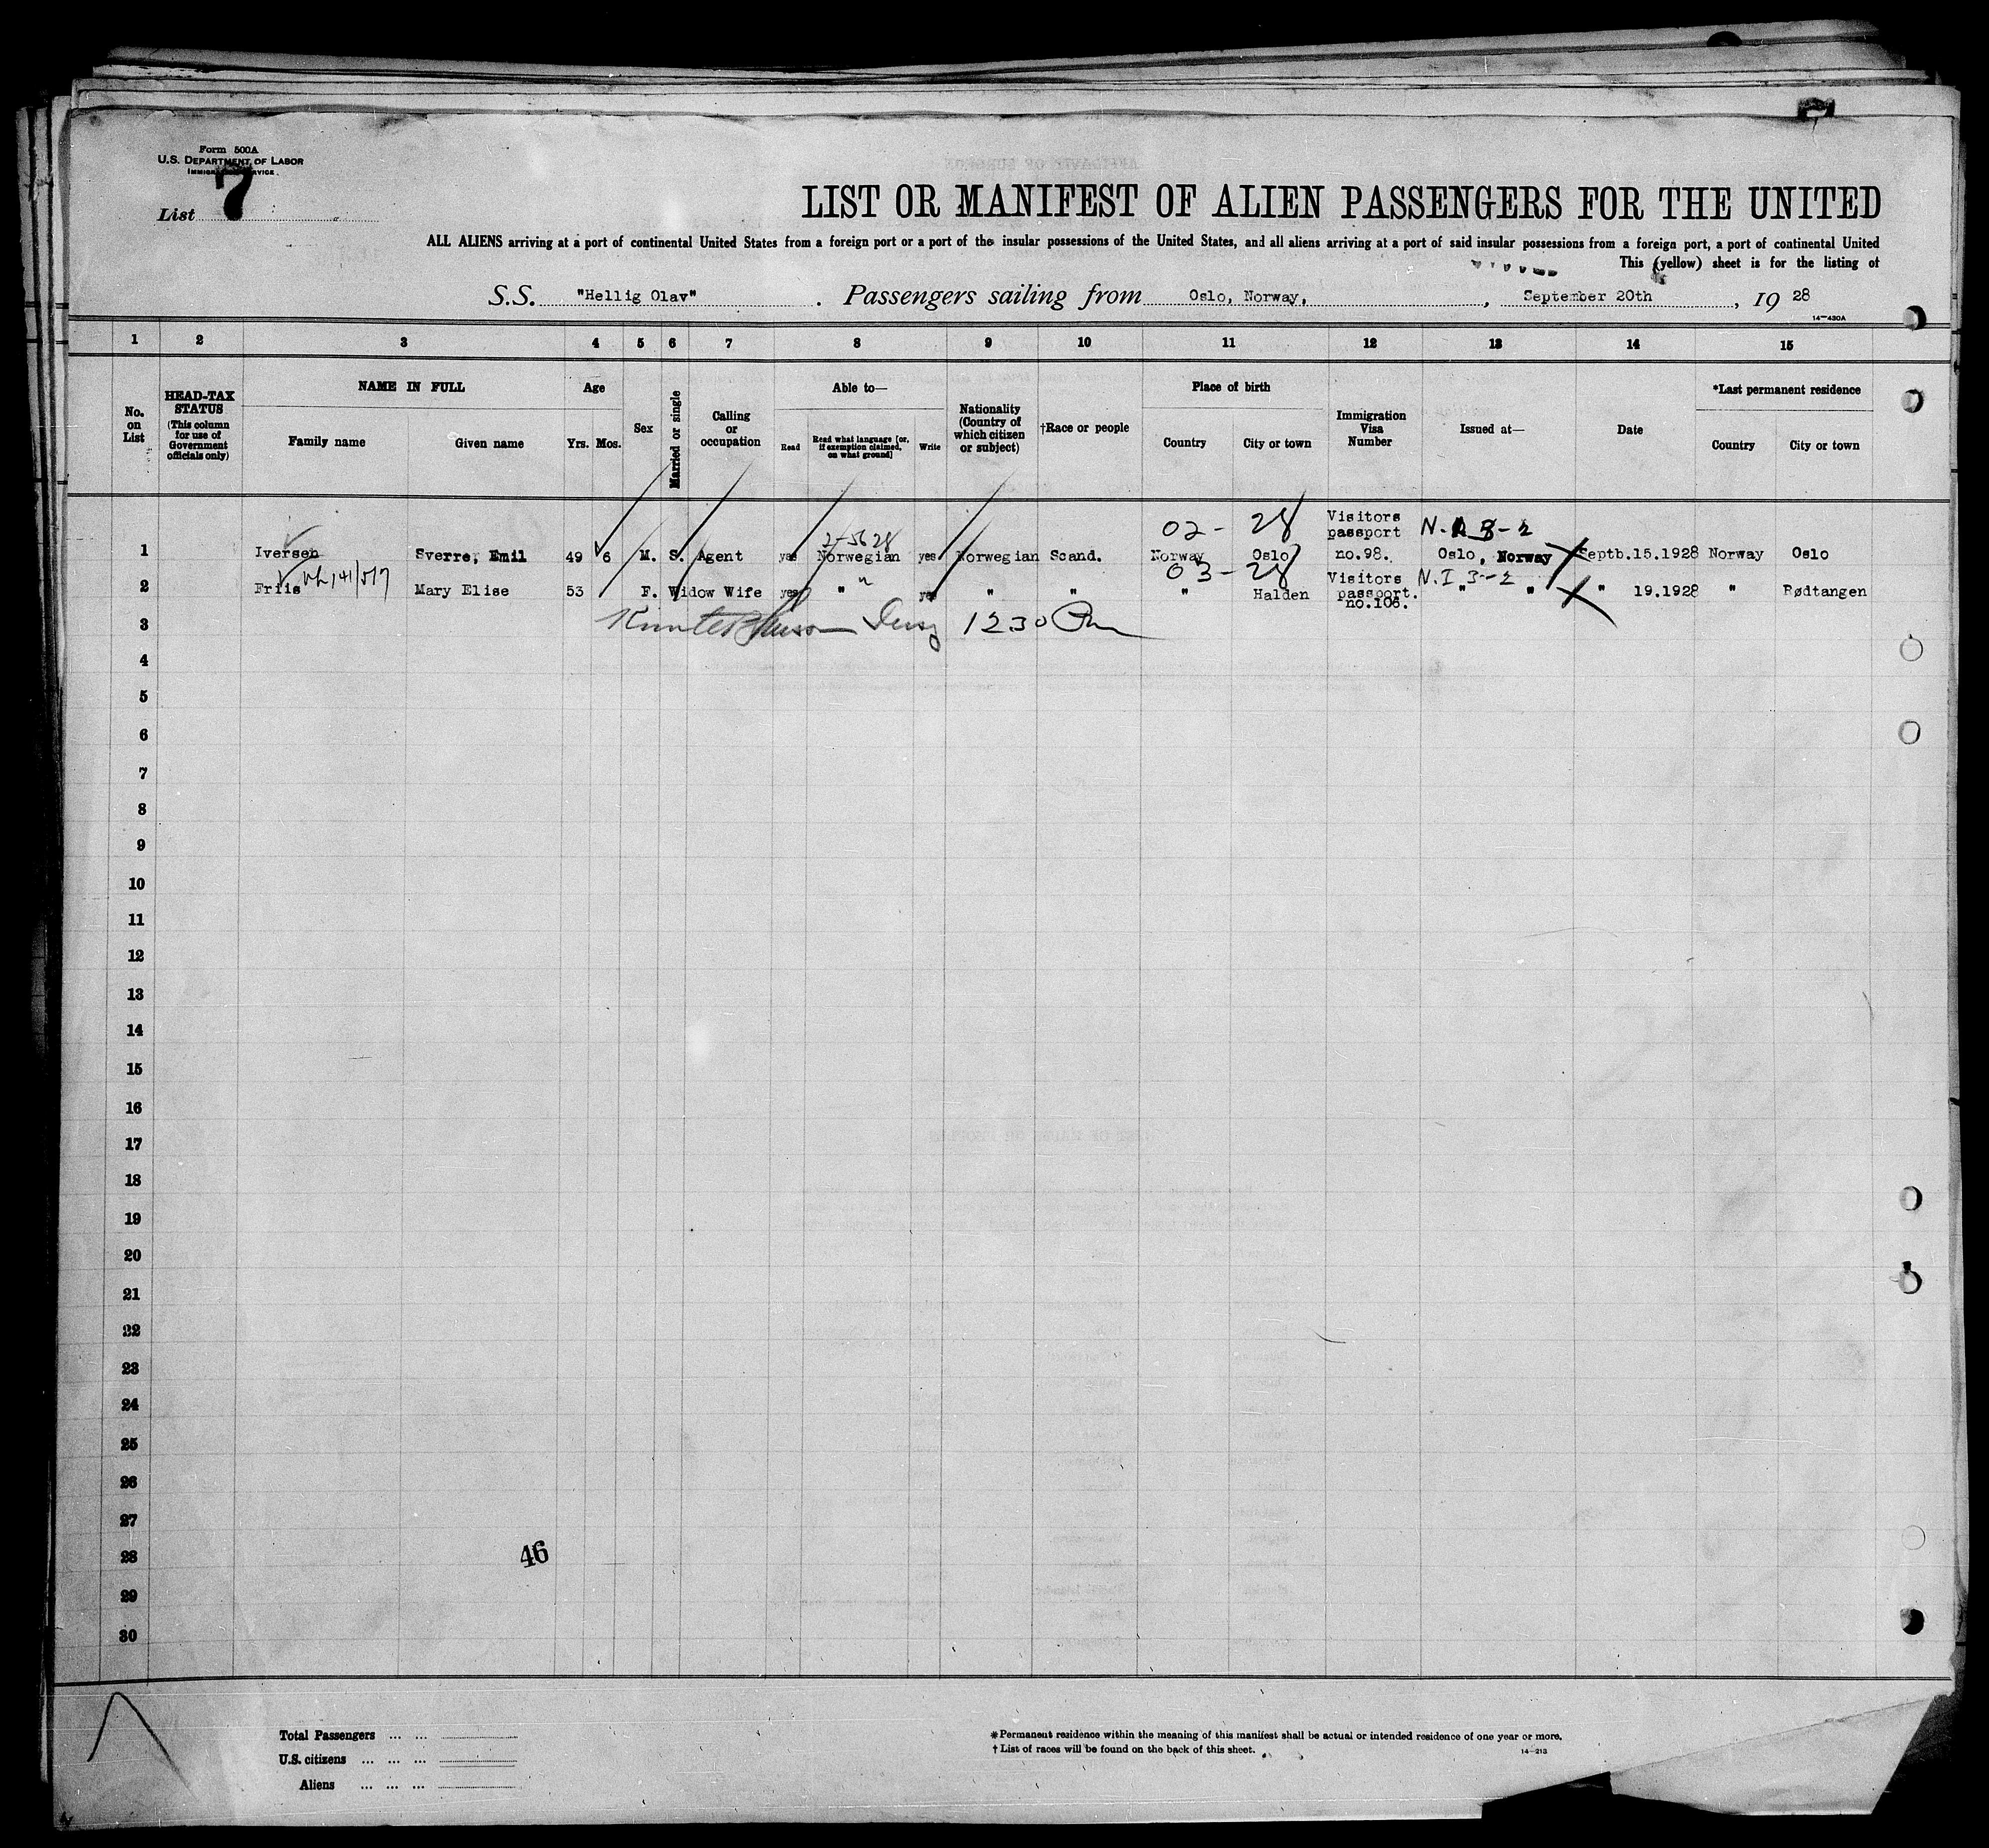 Form 500A
U.S. DEPARTMENT OF LABOR
IMMIGRATION SERVICE
List 7
LIST OR MANIFEST OF ALIEN PASSENGERS FOR THE UNITED
ALL ALIENS arriving at a port of continental United States from a foreign port or a port of the insular possessions of the United States, and all aliens arriving at a port of said insular possessions from a foreign port, a port of continental United
This (yellow) sheet is for the listing of
S.S. "Hellig Olav" . Passengers sailing from Oslo, Norway, , September 20th , 19 28
14-430A
1 2 3 4 5 6 7 8 9 10 11 12 13 14 15
No. on List
HEAD-TAX STATUS (This column for use of Government officials only)
NAME IN FULL
Family name Given name
Age
Yrs. Mos.
Sex
Married or single
Calling or occupation
Able to—
Read
Read what language [or, if exemption claimed, on what ground]
Write
Nationality (Country of which citizen or subject)
†Race or people
Place of birth
Country City or town
Immigration Visa Number
Issued at—
Date
*Last permanent residence
Country City or town
02- 28 Visitors
passport
1 Iversen Sverre, Emil 49 6 M. S. Agent yes Norwegian yes Norwegian Scand. Norway Oslo no.98. Oslo, Norway Septb.15.1928 Norway Oslo
03-28 Visitors N.I 3-2
2 Friis Mary Elise 53 F. Widow Wife yes " yes " " " Halden passport. " " " 19.1928 " Rødtangen
no.106.
3 1230 Pm
4
5
6
7
8
9
10
11
12
13
14
15
16
17
18
19
20
21
22
23
24
25
26
27
28
29
30
46
Total Passengers ... ...
U.S. citizens ... ... ...
Aliens ... ... ...
*Permanent residence within the meaning of this manifest shall be actual or intended residence of one year or more.
†List of races will be found on the back of this sheet.
14-213